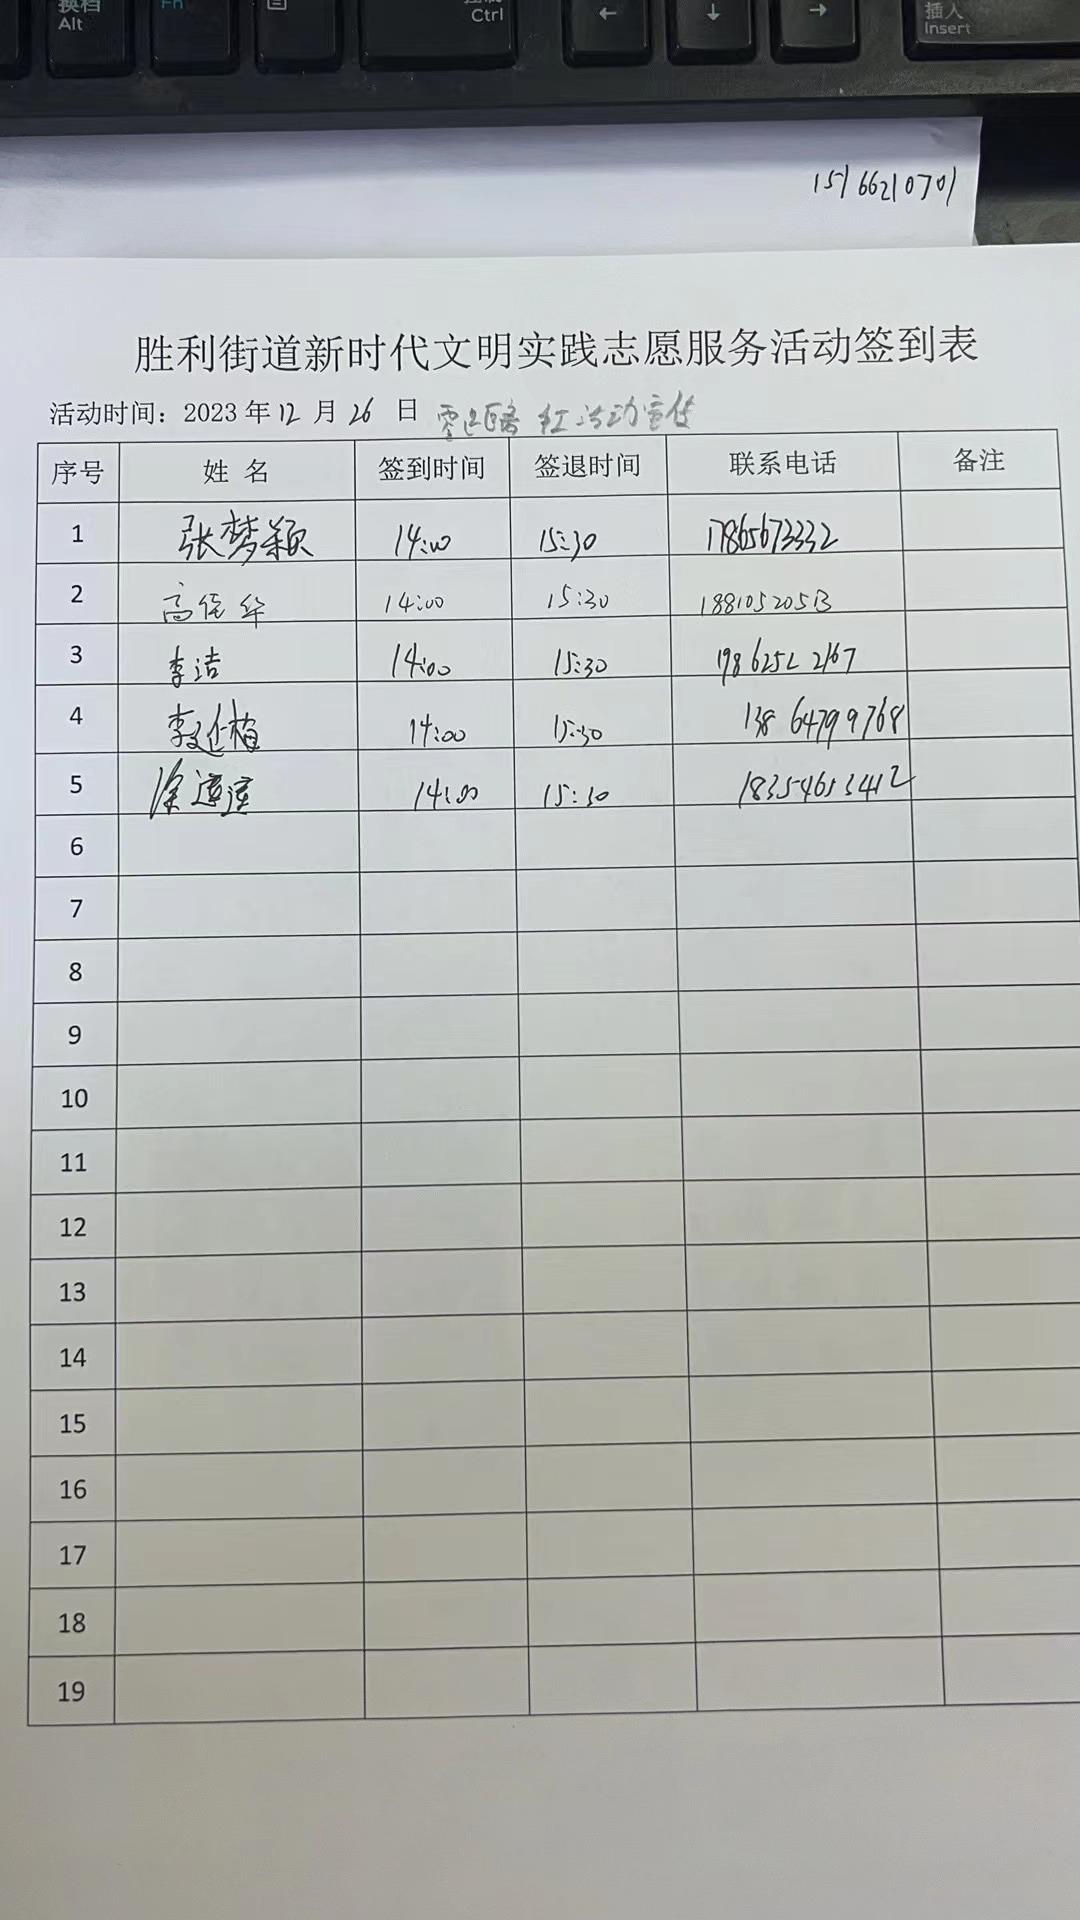 换档
Alt
Fn
Ctrl
←
↓
→
插入
Insert
15166210701
胜利街道新时代文明实践志愿服务活动签到表
活动时间：2023年12月26日 红活动宣传
序号 姓 名 签到时间 签退时间 联系电话 备注
1 张梦颖 14:00 15:30 17865673332
2 高佳华 14:00 15:30 18810520513
3 李洁 14:00 15:30 19862522167
4 李延梅 14:00 15:30 13864799768
5 徐 14:00 15:30 18354653412
6
7
8
9
10
11
12
13
14
15
16
17
18
19